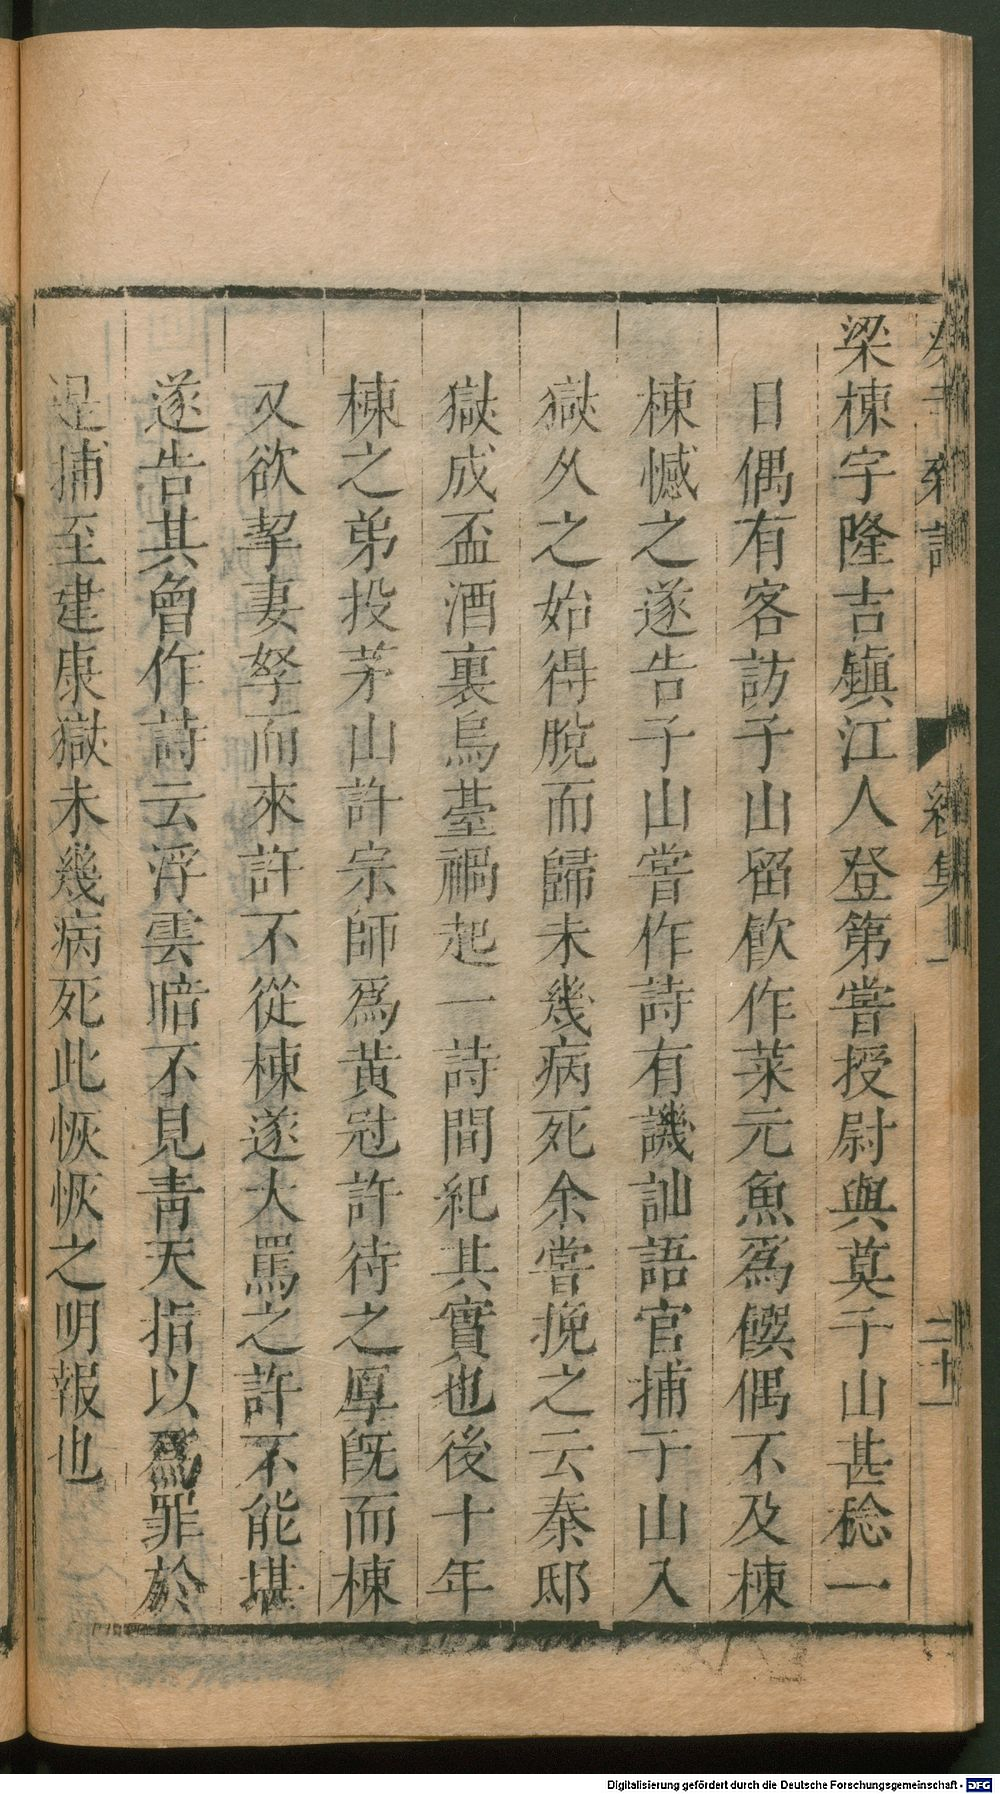 癸辛雜識 續集一 二十一
梁棟字隆吉鎮江人登第嘗授尉與莫子山甚稔一
日偶有客訪子山留飲作菜元魚爲饌偶不及棟
棟憾之遂告子山嘗作詩有譏訕語官捕子山入
獄久之始得脫而歸未幾病死余嘗挽之云秦邸
獄成盃酒裏烏臺禍起一詩間紀其實也後十年
棟之弟投茅山許宗師爲黃冠許待之厚既而棟
又欲挈妻孥而來許不從棟遂大罵之許不能堪
遂告其曾作詩云浮雲暗不見青天指以爲罪於
是捕至建康獄未幾病死此恢恢之明報也
Digitalisierung gefördert durch die Deutsche Forschungsgemeinschaft - DFG